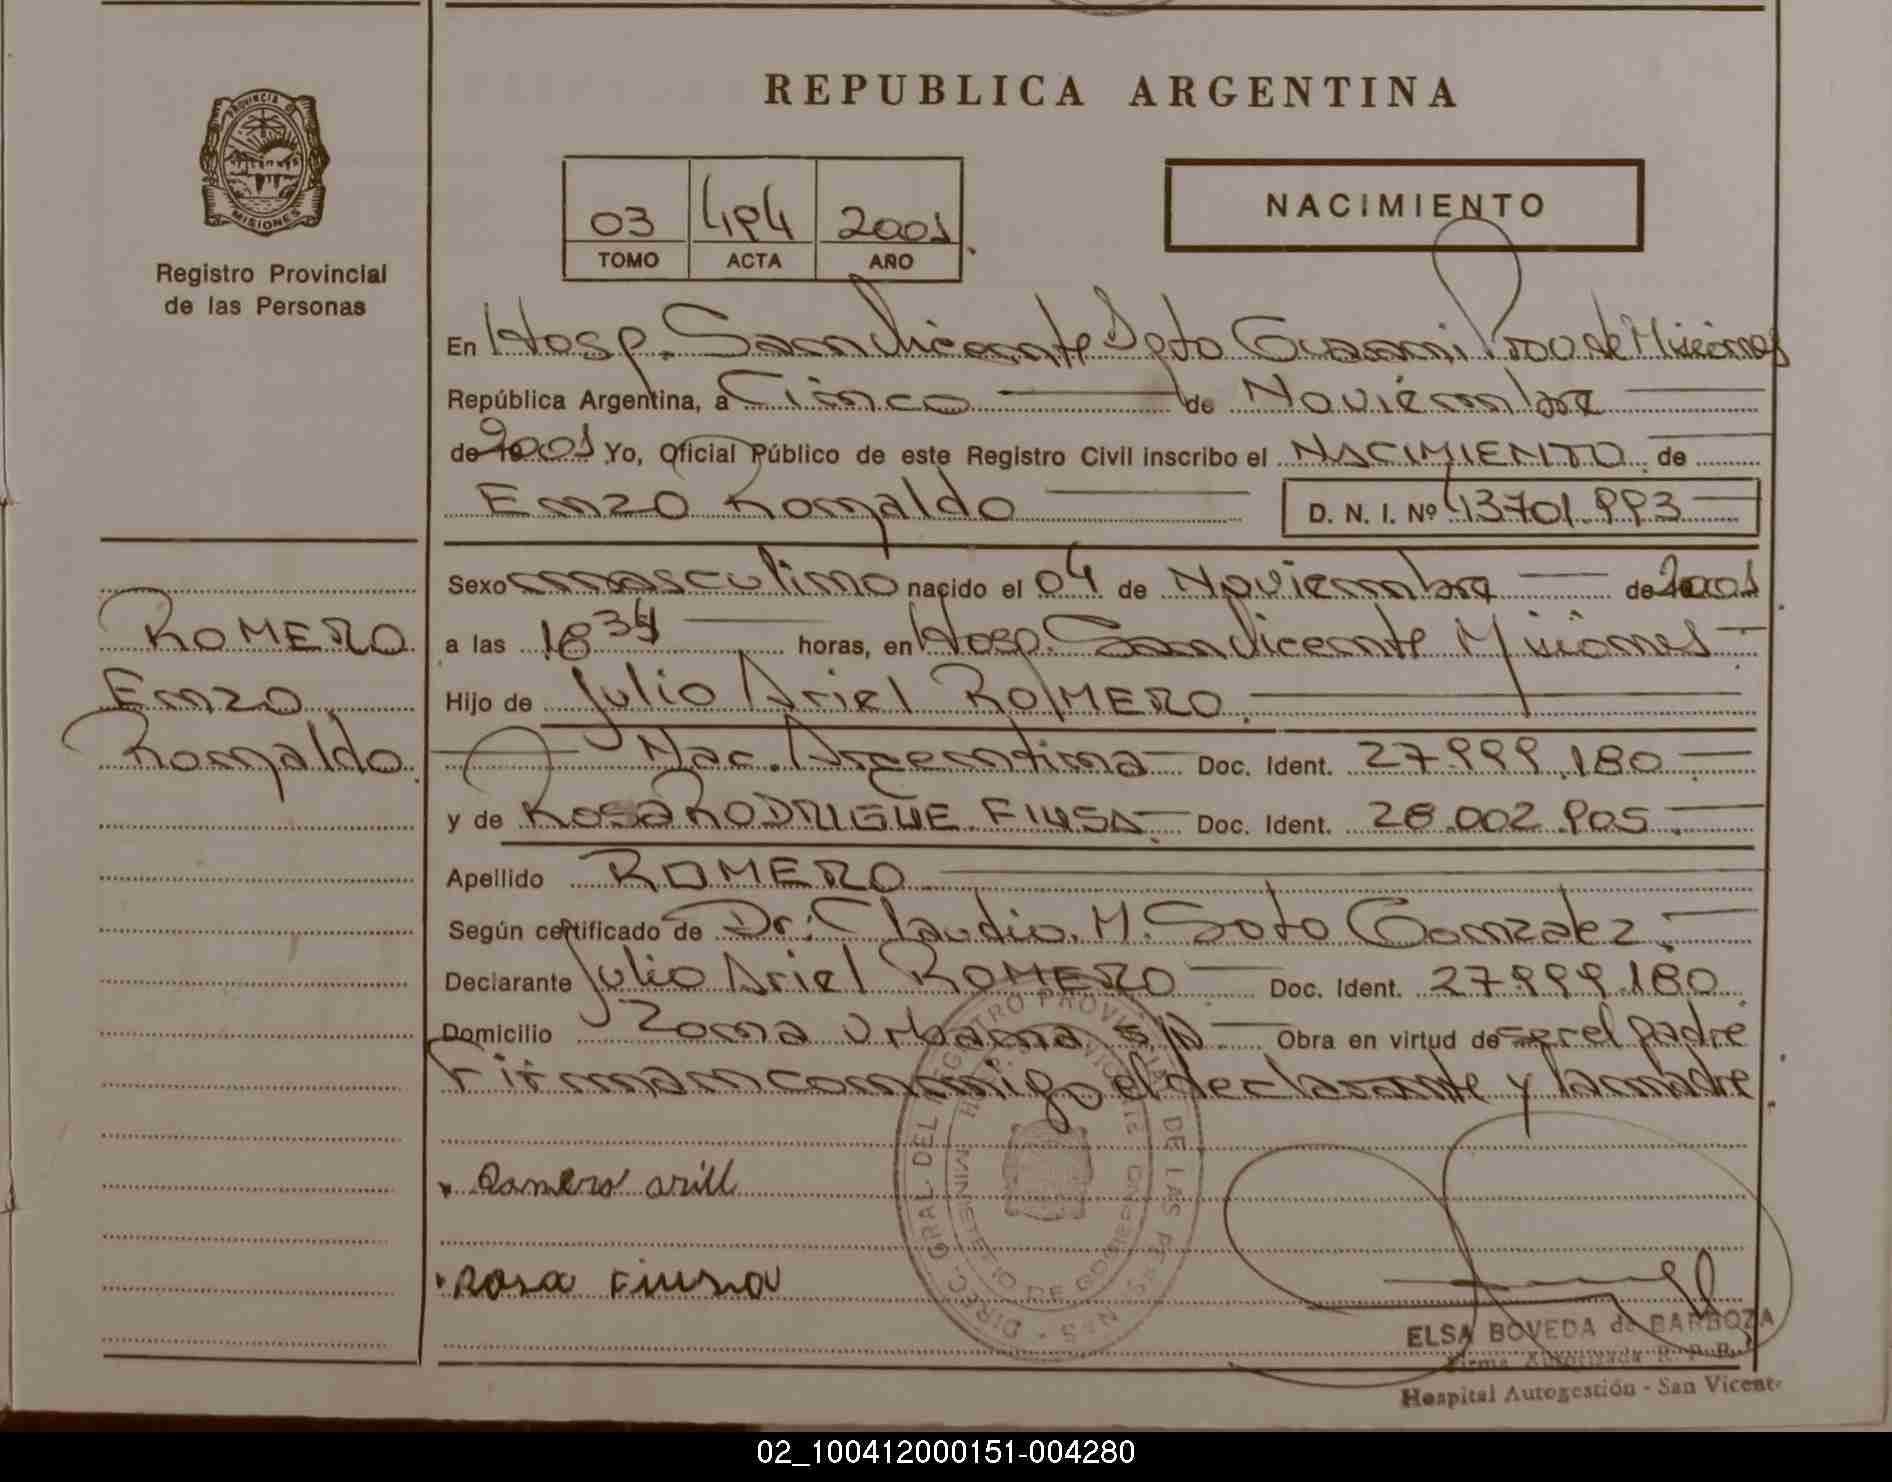 PROVINCIA DE
MISIONES
Registro Provincial
de las Personas
REPUBLICA ARGENTINA
03 494 2001
TOMO ACTA AÑO
NACIMIENTO
En Hosp. San Vicente Dpto Guarani Prov de Misiones
República Argentina, a Cinco de Noviembre
de 2001 Yo, Oficial Público de este Registro Civil inscribo el NACIMIENTO de
Enzo Ronaldo D. N. I. Nº 43701.993
Sexo masculino nacido el 04 de Noviembre de 2001
a las 18 34 horas, en Hosp. San Vicente Misiones
Hijo de Julio Ariel ROMERO
Nac. Argentina Doc. Ident. 27.999.180
y de Rosa RODRIGUE FIUSA Doc. Ident. 28.002.905
Apellido ROMERO
Según certificado de Dr: Claudio. M. Soto Gonzalez.
Declarante Julio Ariel ROMERO Doc. Ident. 27.999.180
Domicilio Zona Urbana S/N Obra en virtud de ser el padre
Firman conmigo el declarante y la madre
ROMERO
Enzo
Ronaldo
Rosa Fiusa
DIREC. GRAL. DEL REGISTRO PROVINCIAL DE LAS PERSONAS
MINISTERIO DE GOBIERNO
ELSA BOVEDA de BARBOZA
Firma Autorizada R. P. P.
Hospital Autogestión - San Vicente
02_100412000151-004280